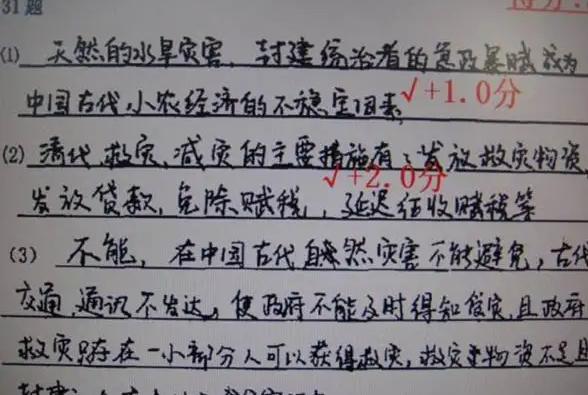 31题
(1) 天然的水旱灾害,封建统治者的苛政暴赋成为
中国古代小农经济的不稳定因素
√+1.0分
(2) 清代救灾、减灾的主要措施有:发放救灾物资,
√+2.0分
发放贷款,免除赋税,延迟征收赋税等
(3) 不能,在中国古代自然灾害不能避免,古代
交通、通讯不发达,使政府不能及时得知灾,且政府
救灾只存在一小部分人可以获得救灾,救灾物资不足且